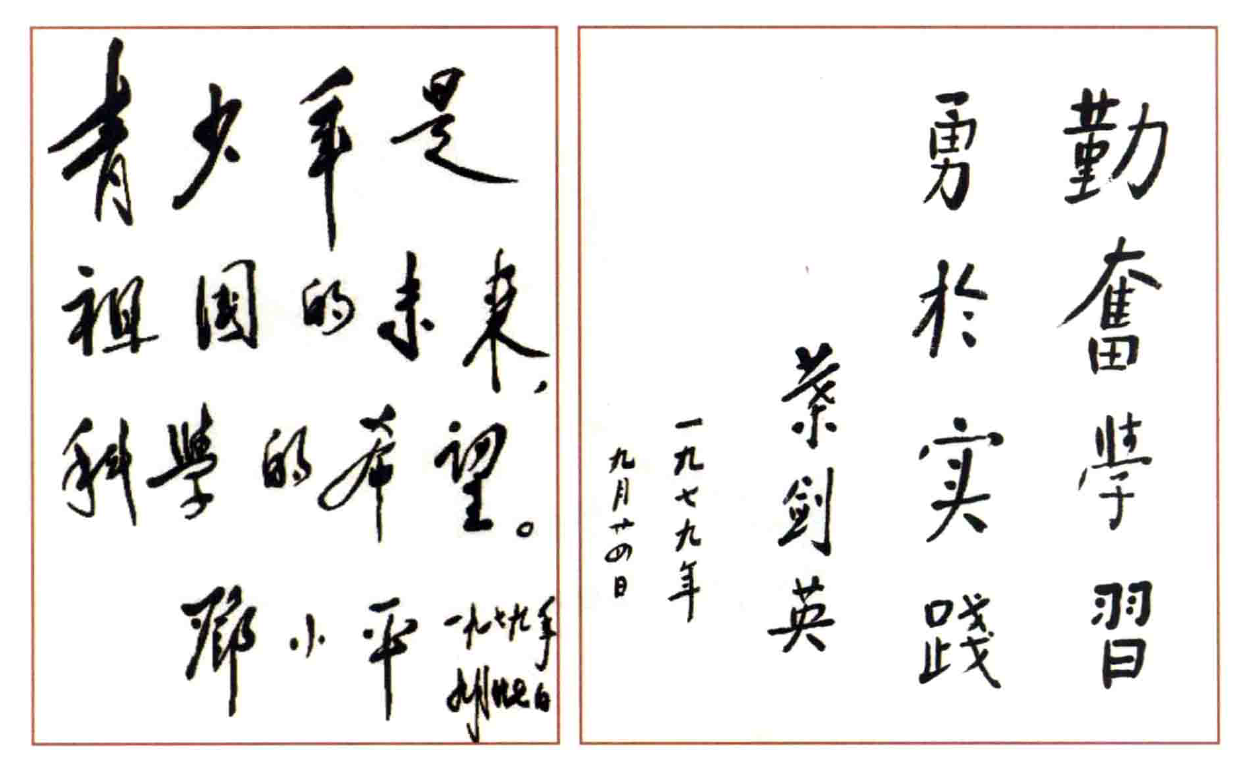 青少年是
祖国的未来，
科學的希望。
鄧小平
一九七九年
九月
勤奮學習
勇於实踐
葉剑英
一九七九年
九月廿四日